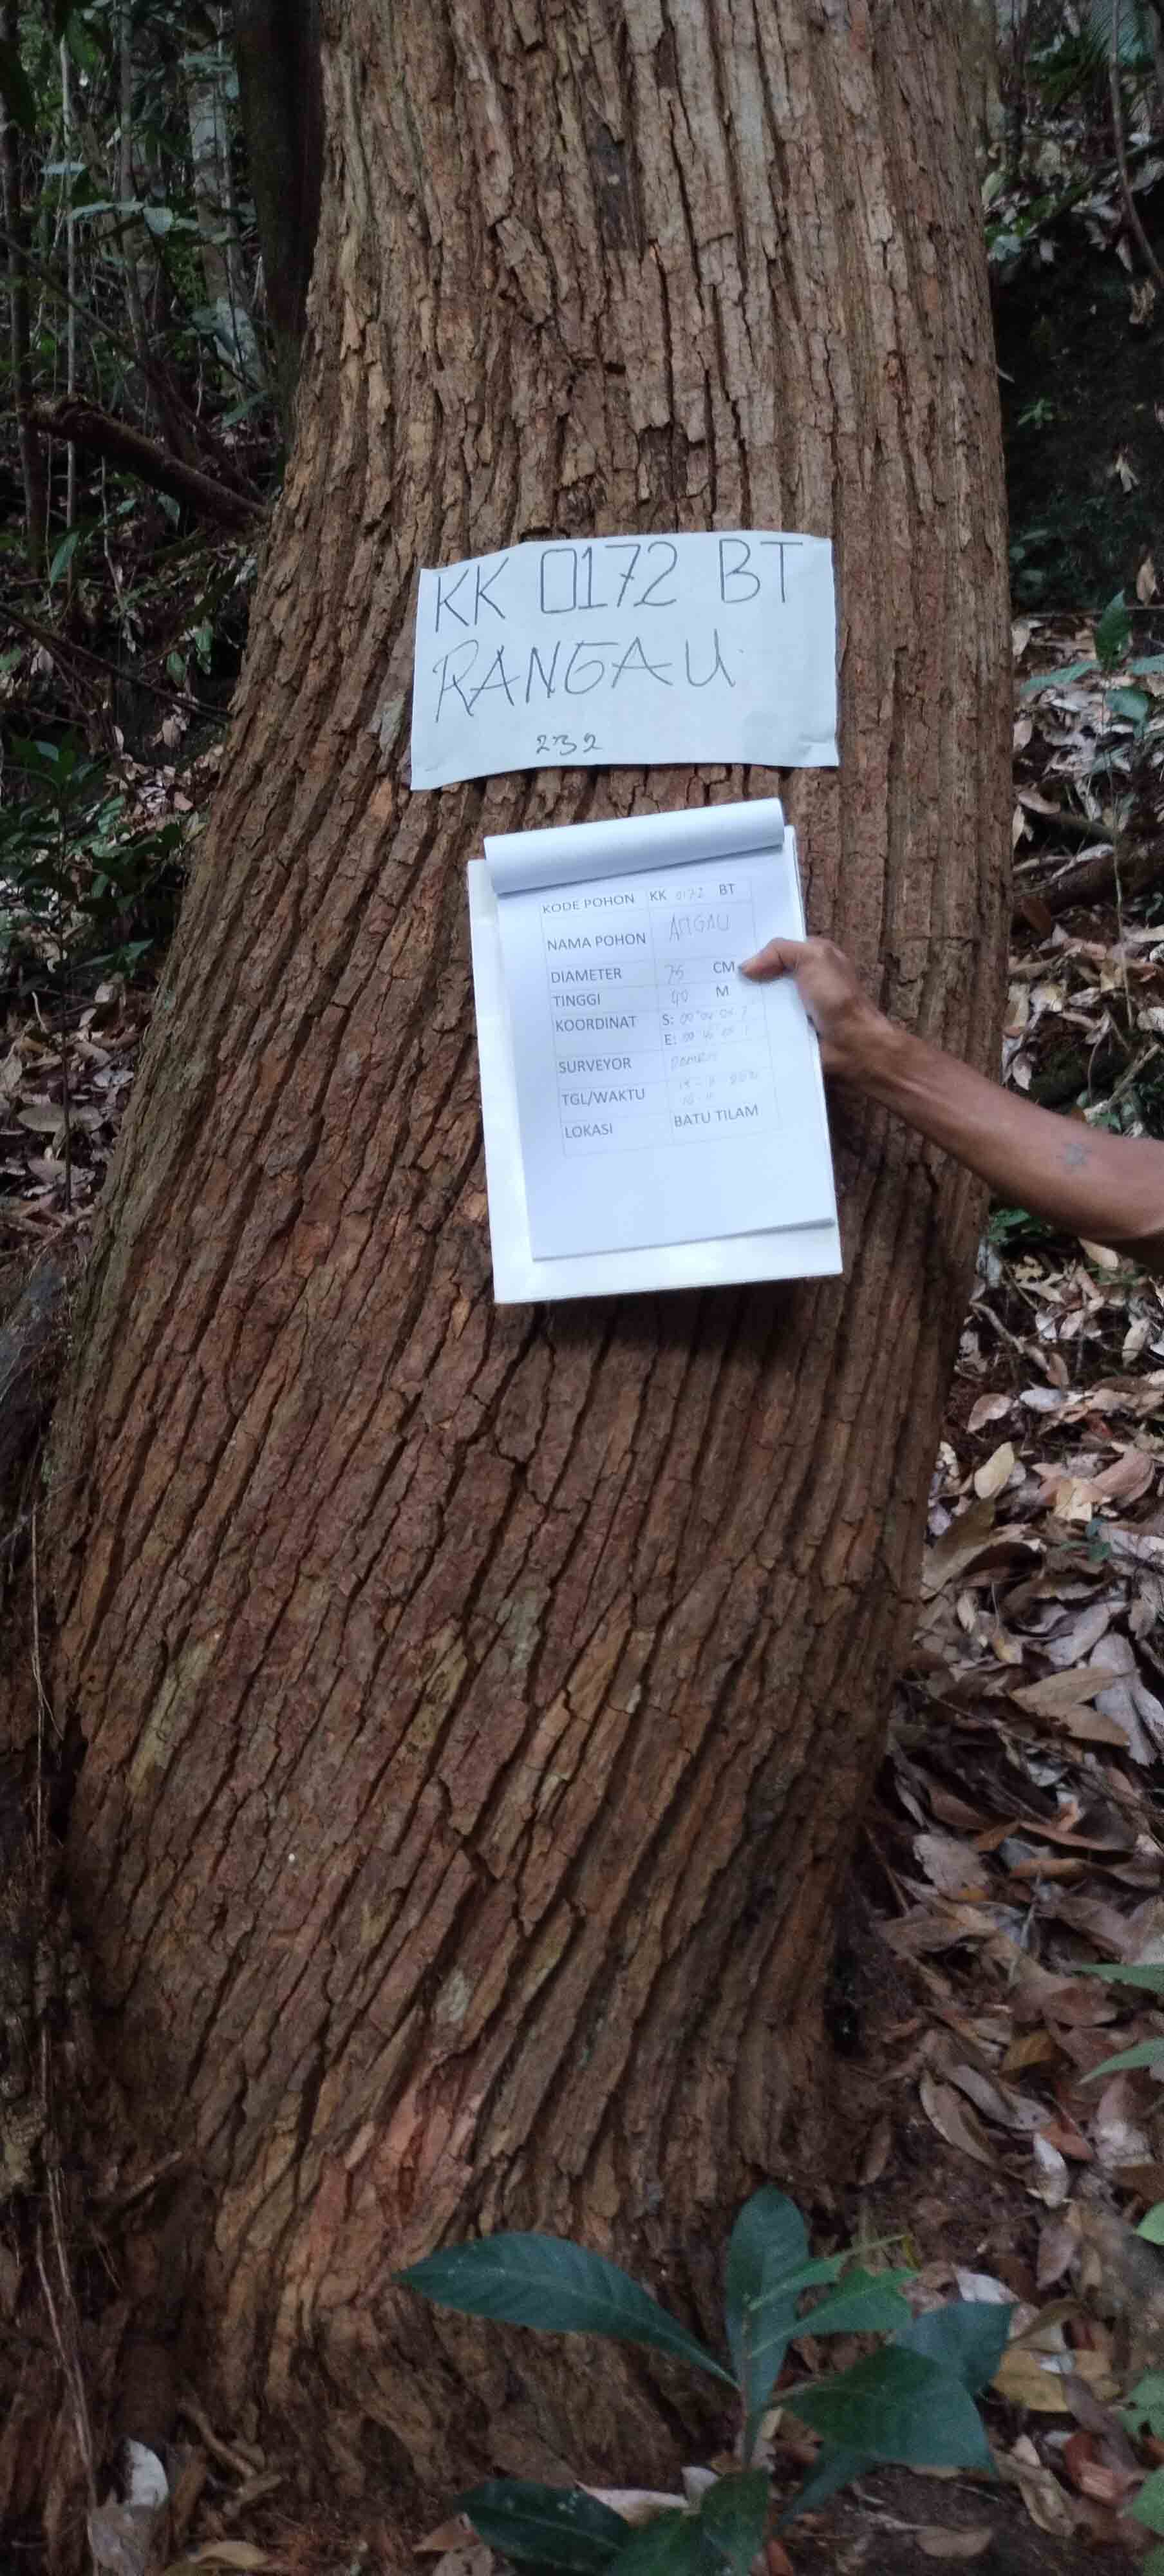 KK 0172 BT
RANGAU
232
KODE POHON KK 0172 BT
NAMA POHON
DIAMETER 75 CM
TINGGI 40 M
KOORDINAT S:
E:
SURVEYOR
TGL/WAKTU
LOKASI BATU TILAM